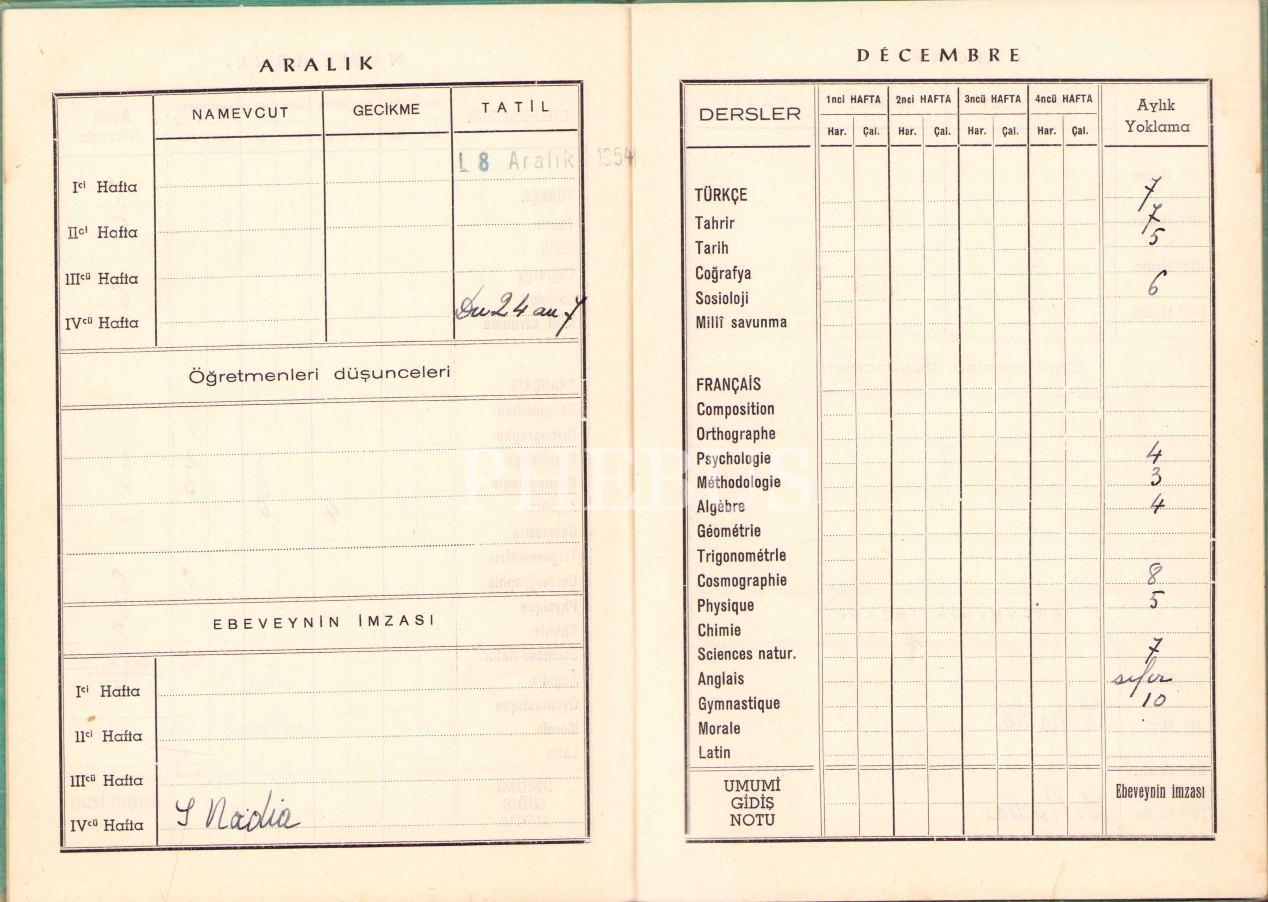 ARALIK
NAMEVCUT GECİKME TATİL
L 8 Aralık 1954
Ici Hafta
IIci Hafta
IIIcü Hafta
IVcü Hafta Du 24 au 7
Öğretmenleri düşunceleri
EBEVEYNİN İMZASI
Ici Hafta
IIci Hafta
IIIcü Hafta
IVcü Hafta S Nadia
DÉCEMBRE
DERSLER 1nci HAFTA 2nci HAFTA 3ncü HAFTA 4ncü HAFTA Aylık Yoklama
Har. Çal. Har. Çal. Har. Çal. Har. Çal.
TÜRKÇE 7
Tahrir 7
Tarih 5
Coğrafya
Sosioloji 6
Millî savunma
FRANÇAİS
Composition
Orthographe
Psychologie 4
Méthodologie 3
Algèbre 4
Géométrie
Trigonométrie
Cosmographie 8
Physique 5
Chimie
Sciences natur. 7
Anglais sıfır
Gymnastique 10
Morale
Latin
UMUMİ GİDİŞ NOTU Ebeveynin imzası
PHEBUS